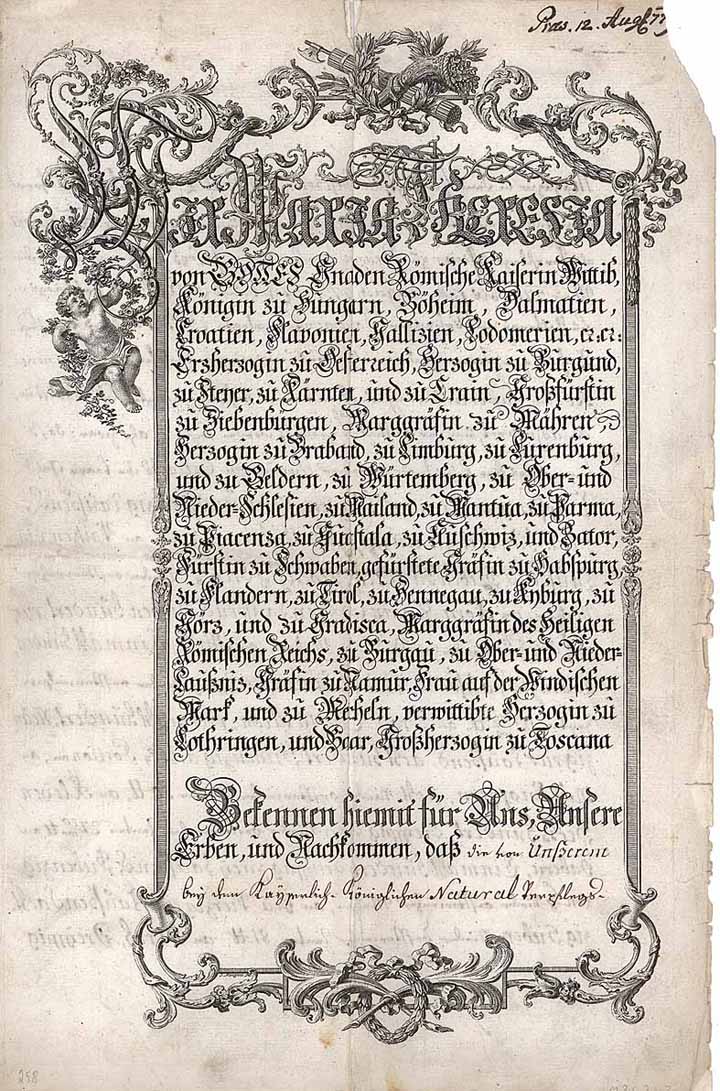 Præs. 12. Aug.
Wir Maria Theresia
von GOTTES Gnaden Römische Kaiserin Wittib,
Königin zu Hungarn, Böheim, Dalmatien,
Croatien, Slavonien, Gallizien, Lodomerien, ec: ec:
Erzherzogin zu Oesterreich, Herzogin zu Burgund,
zu Steyer, zu Kärnten, und zu Crain, Großfürstin
zu Siebenburgen, Marggräfin zu Mähren
Herzogin zu Braband, zu Limburg, zu Luxenburg,
und zu Geldern, zu Würtemberg, zu Ober- und
Nieder-Schlesien, zu Mailand, zu Mantua, zu Parma,
zu Piacenza, zu Guastala, zu Auschwiz, und Zator,
Fürstin zu Schwaben, gefürstete Gräfin zu Habspurg,
zu Flandern, zu Tirol, zu Hennegau, zu Kyburg, zu
Görz, und zu Gradisca, Marggräfin des Heiligen
Römischen Reichs, zu Burgau, zu Ober- und Nieder-
Laußniz, Gräfin zu Namur, Frau auf der Windischen
Mark, und zu Mecheln, verwittibte Herzogin zu
Lothringen, und Baar, Großherzogin zu Toscana
Bekennen hiemit für Uns, Unsere
Erben, und Nachkommen, daß die von Unserem
bey dem Kayserlich-Königlichen Natural Verpflegs-
258